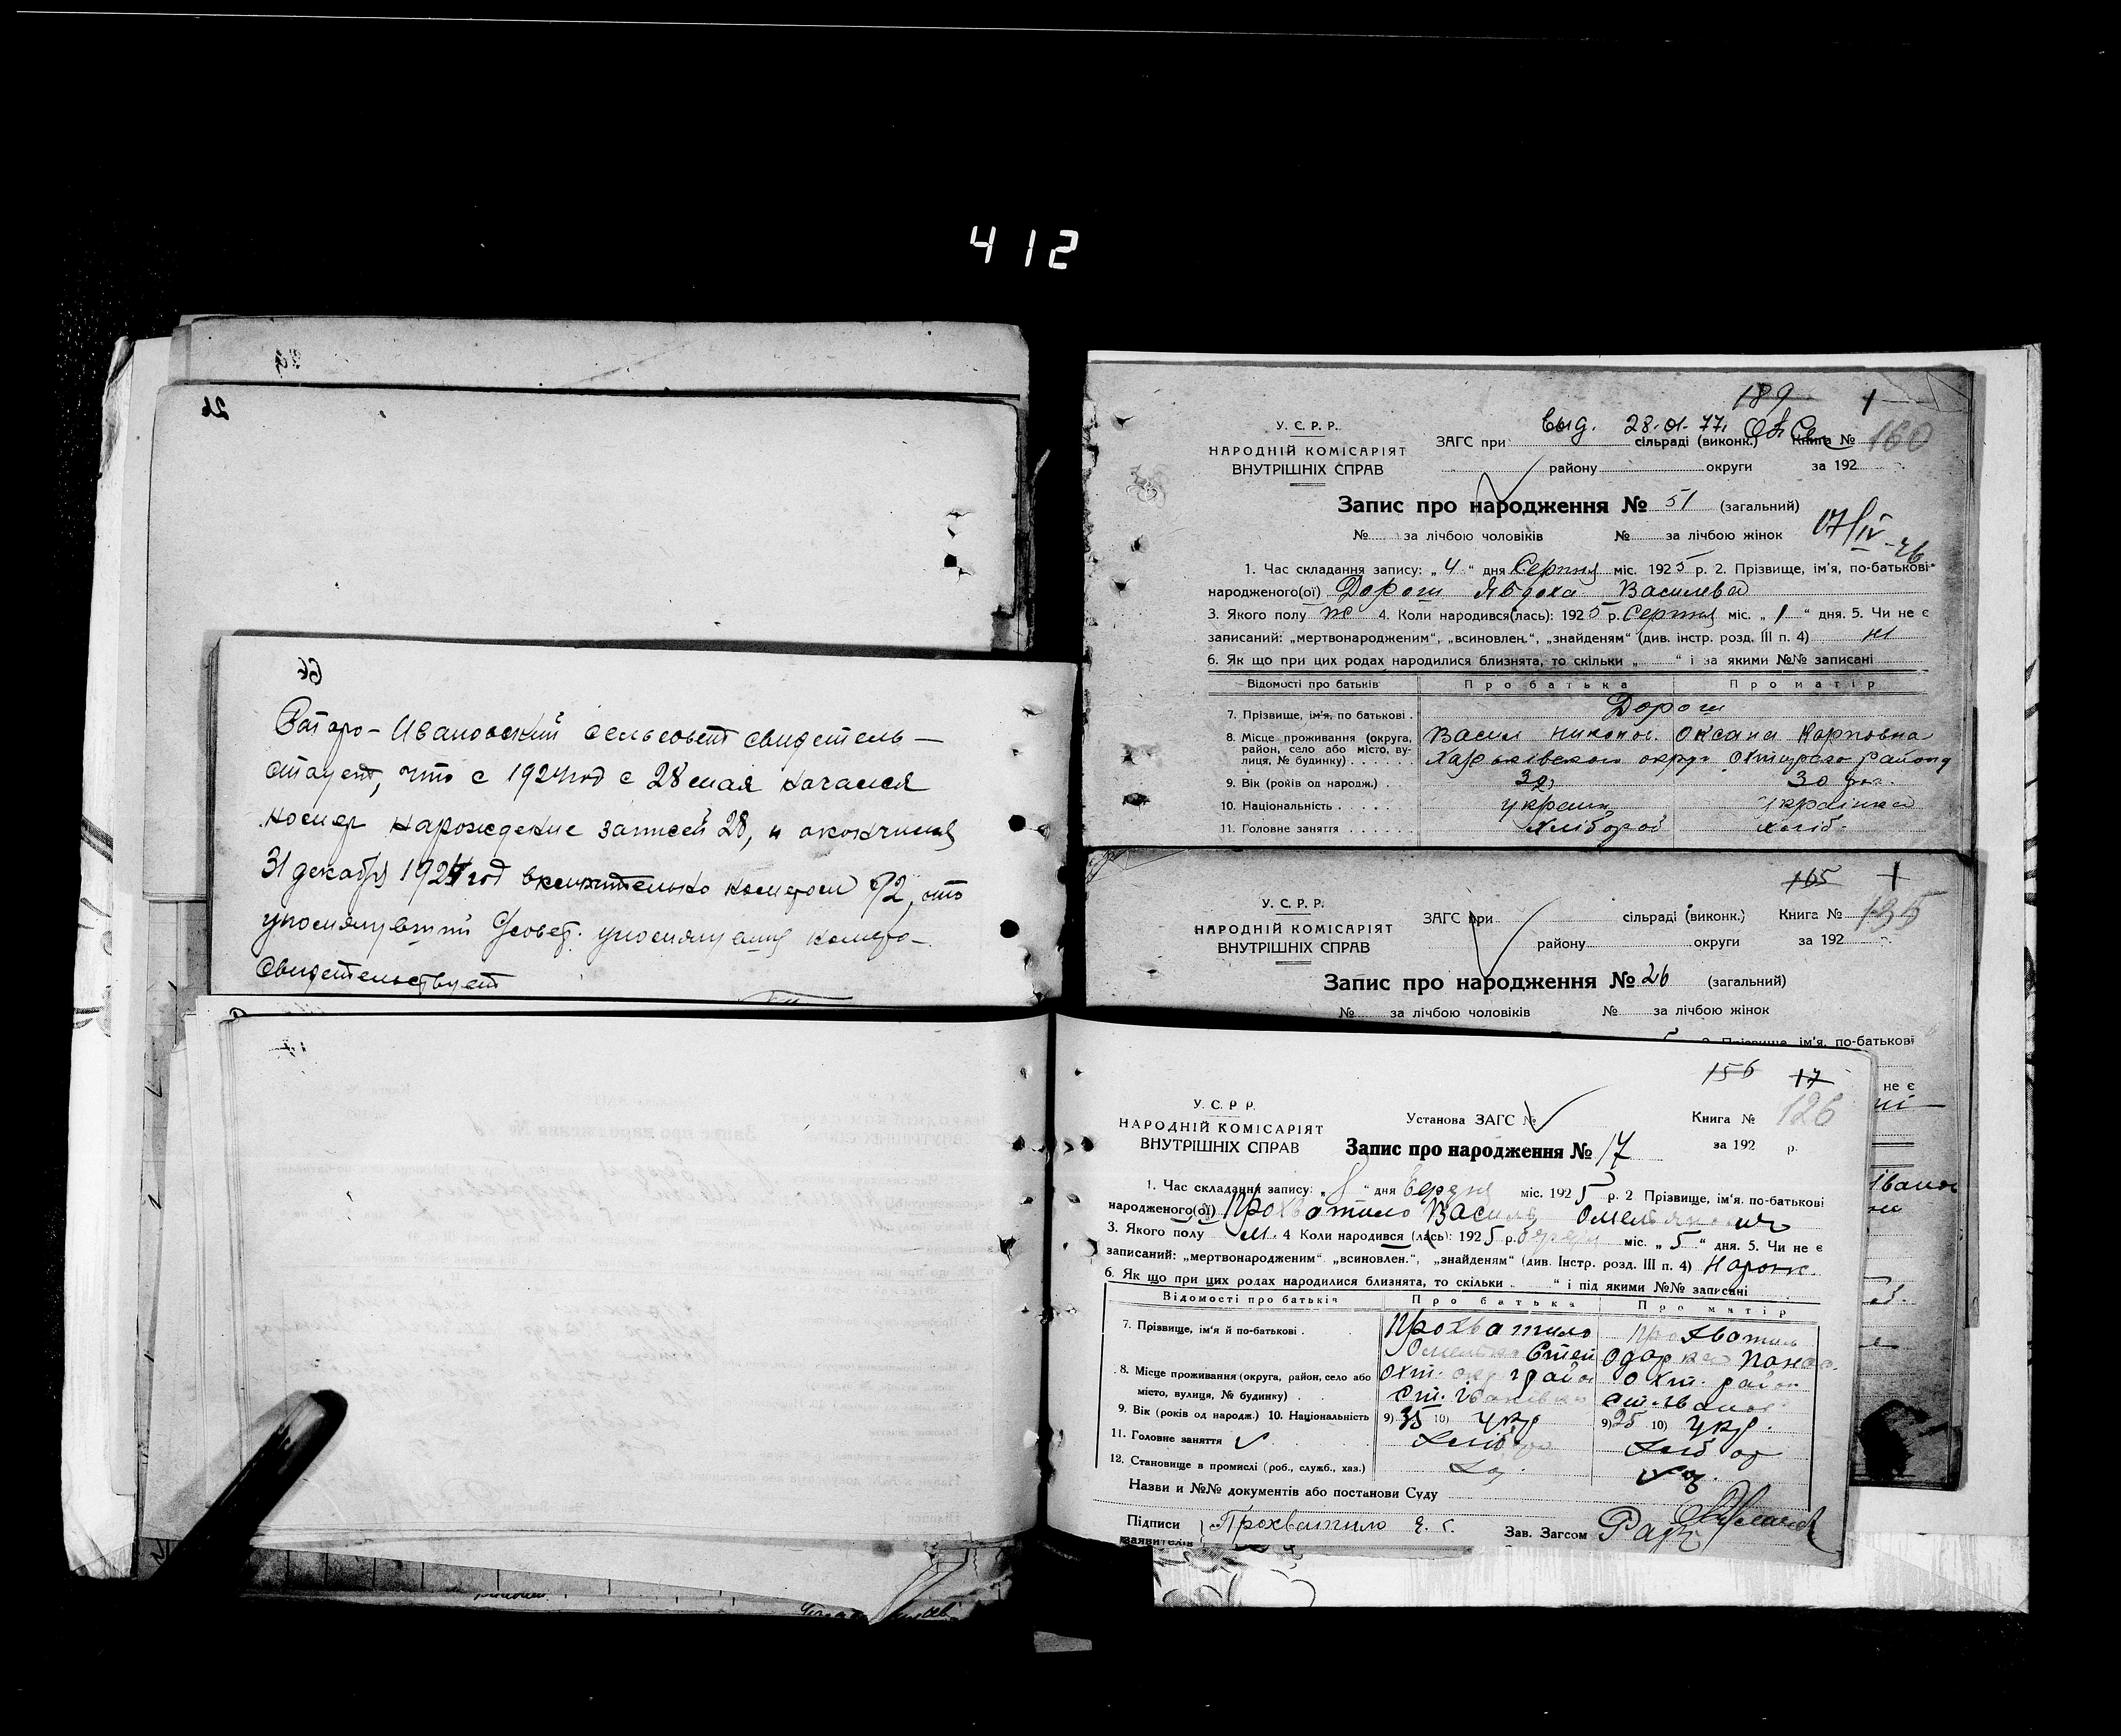 412
26
66
Старо-Ивановский сельсовет свидетель-
ствует, что с 1924 год с 28 мая начался
номер нарождение записей 28, и окончился
31 декабря 1924 год включительно номером 92, что
упомянувший С/совет. упомянувший номера-
свидетельствует
189 1
выд. 28.01.77.
У. С. Р. Р.
НАРОДНІЙ КОМІСАРІЯТ
ВНУТРІШНІХ СПРАВ
ЗАГС при сільраді (виконк.) Книга № 160
району округи за 192
Запис про народження № 51 (загальний)
№ за лічбою чоловіків № за лічбою жінок 17/IV-46
1. Час складання запису: „4“ дня Серпня міс. 1925 р. 2. Прізвище, ім'я, по-батькові
народженого(ої) Дорош Явдоха Василева
3. Якого полу ж 4. Коли народився(лась): 1925 р. Серпня міс. „1“ дня. 5. Чи не є
записаний: „мертвонародженим“, „всиновлен.“, „знайденям“ (див. інстр. розд. III п. 4) ні
6. Як що при цих родах народилися близнята, то скільки „ “ і за якими №№ записані
Відомості про батьків Про батька Про матір
7. Прізвище, ім'я, по батькові . Дорош
8. Місце проживання (округа, район, село або місто, ву-
лиця, № будинку) . . . . . .
Васил Никол. Оксана Карповна
Харьківского округ Охтирсько району
9. Вік (років од народж.) . . 32 30 рок.
10. Національність . . . . . україн. українка
11. Головне заняття . . . . . Хлібороб хліб.
165 1
У. С. Р. Р.
НАРОДНІЙ КОМІСАРІЯТ
ВНУТРІШНІХ СПРАВ
ЗАГС при сільраді (виконк.) Книга № 135
району округи за 192
Запис про народження № 26 (загальний)
№ за лічбою чоловіків № за лічбою жінок
2. Прізвище, ім'я, по-батькові
не є
156 17
У. С. Р. Р.
НАРОДНІЙ КОМІСАРІЯТ
ВНУТРІШНІХ СПРАВ
Установа ЗАГС № Книга № 126
Запис про народження № 17 за 192 р.
1. Час складання запису: „8“ дня березня міс. 1925 р. 2 Прізвище, ім'я, по-батькові
народженого(ої) Прохватило Василь Омельянович
3. Якого полу М. 4 Коли народився (лась): 1925 р. березн міс. „5“ дня. 5. Чи не є
записаний: „мертвонародженим“ „всиновлен.“, „знайденям“ (див. Інстр. розд. III п. 4) Нарож.
6. Як що при цих родах народилися близнята, то скільки „ “ і під якими №№ записані
Відомості про батьків Про батька Про матір
7. Прізвище, ім'я й по-батькові . Прохватило Прохватило
Омелько Степ Одарка Панас.
8. Місце проживання (округа, район, село або
місто, вулиця, № будинку) .
Охт. окр. район Охт. район
Ст. Іванівка Ст. Іванов
9. Вік (років од народж.) 10. Національність 9) 35 10) Укр 9) 25 10) Укр.
11. Головне заняття Хлібор Хлібор
12. Становище в промислі (роб., служб., хаз.) Хаз. Хаз.
Назви и №№ документів або постанови Суду
Підписи
заявителів
Прохватило Зав. Загсом